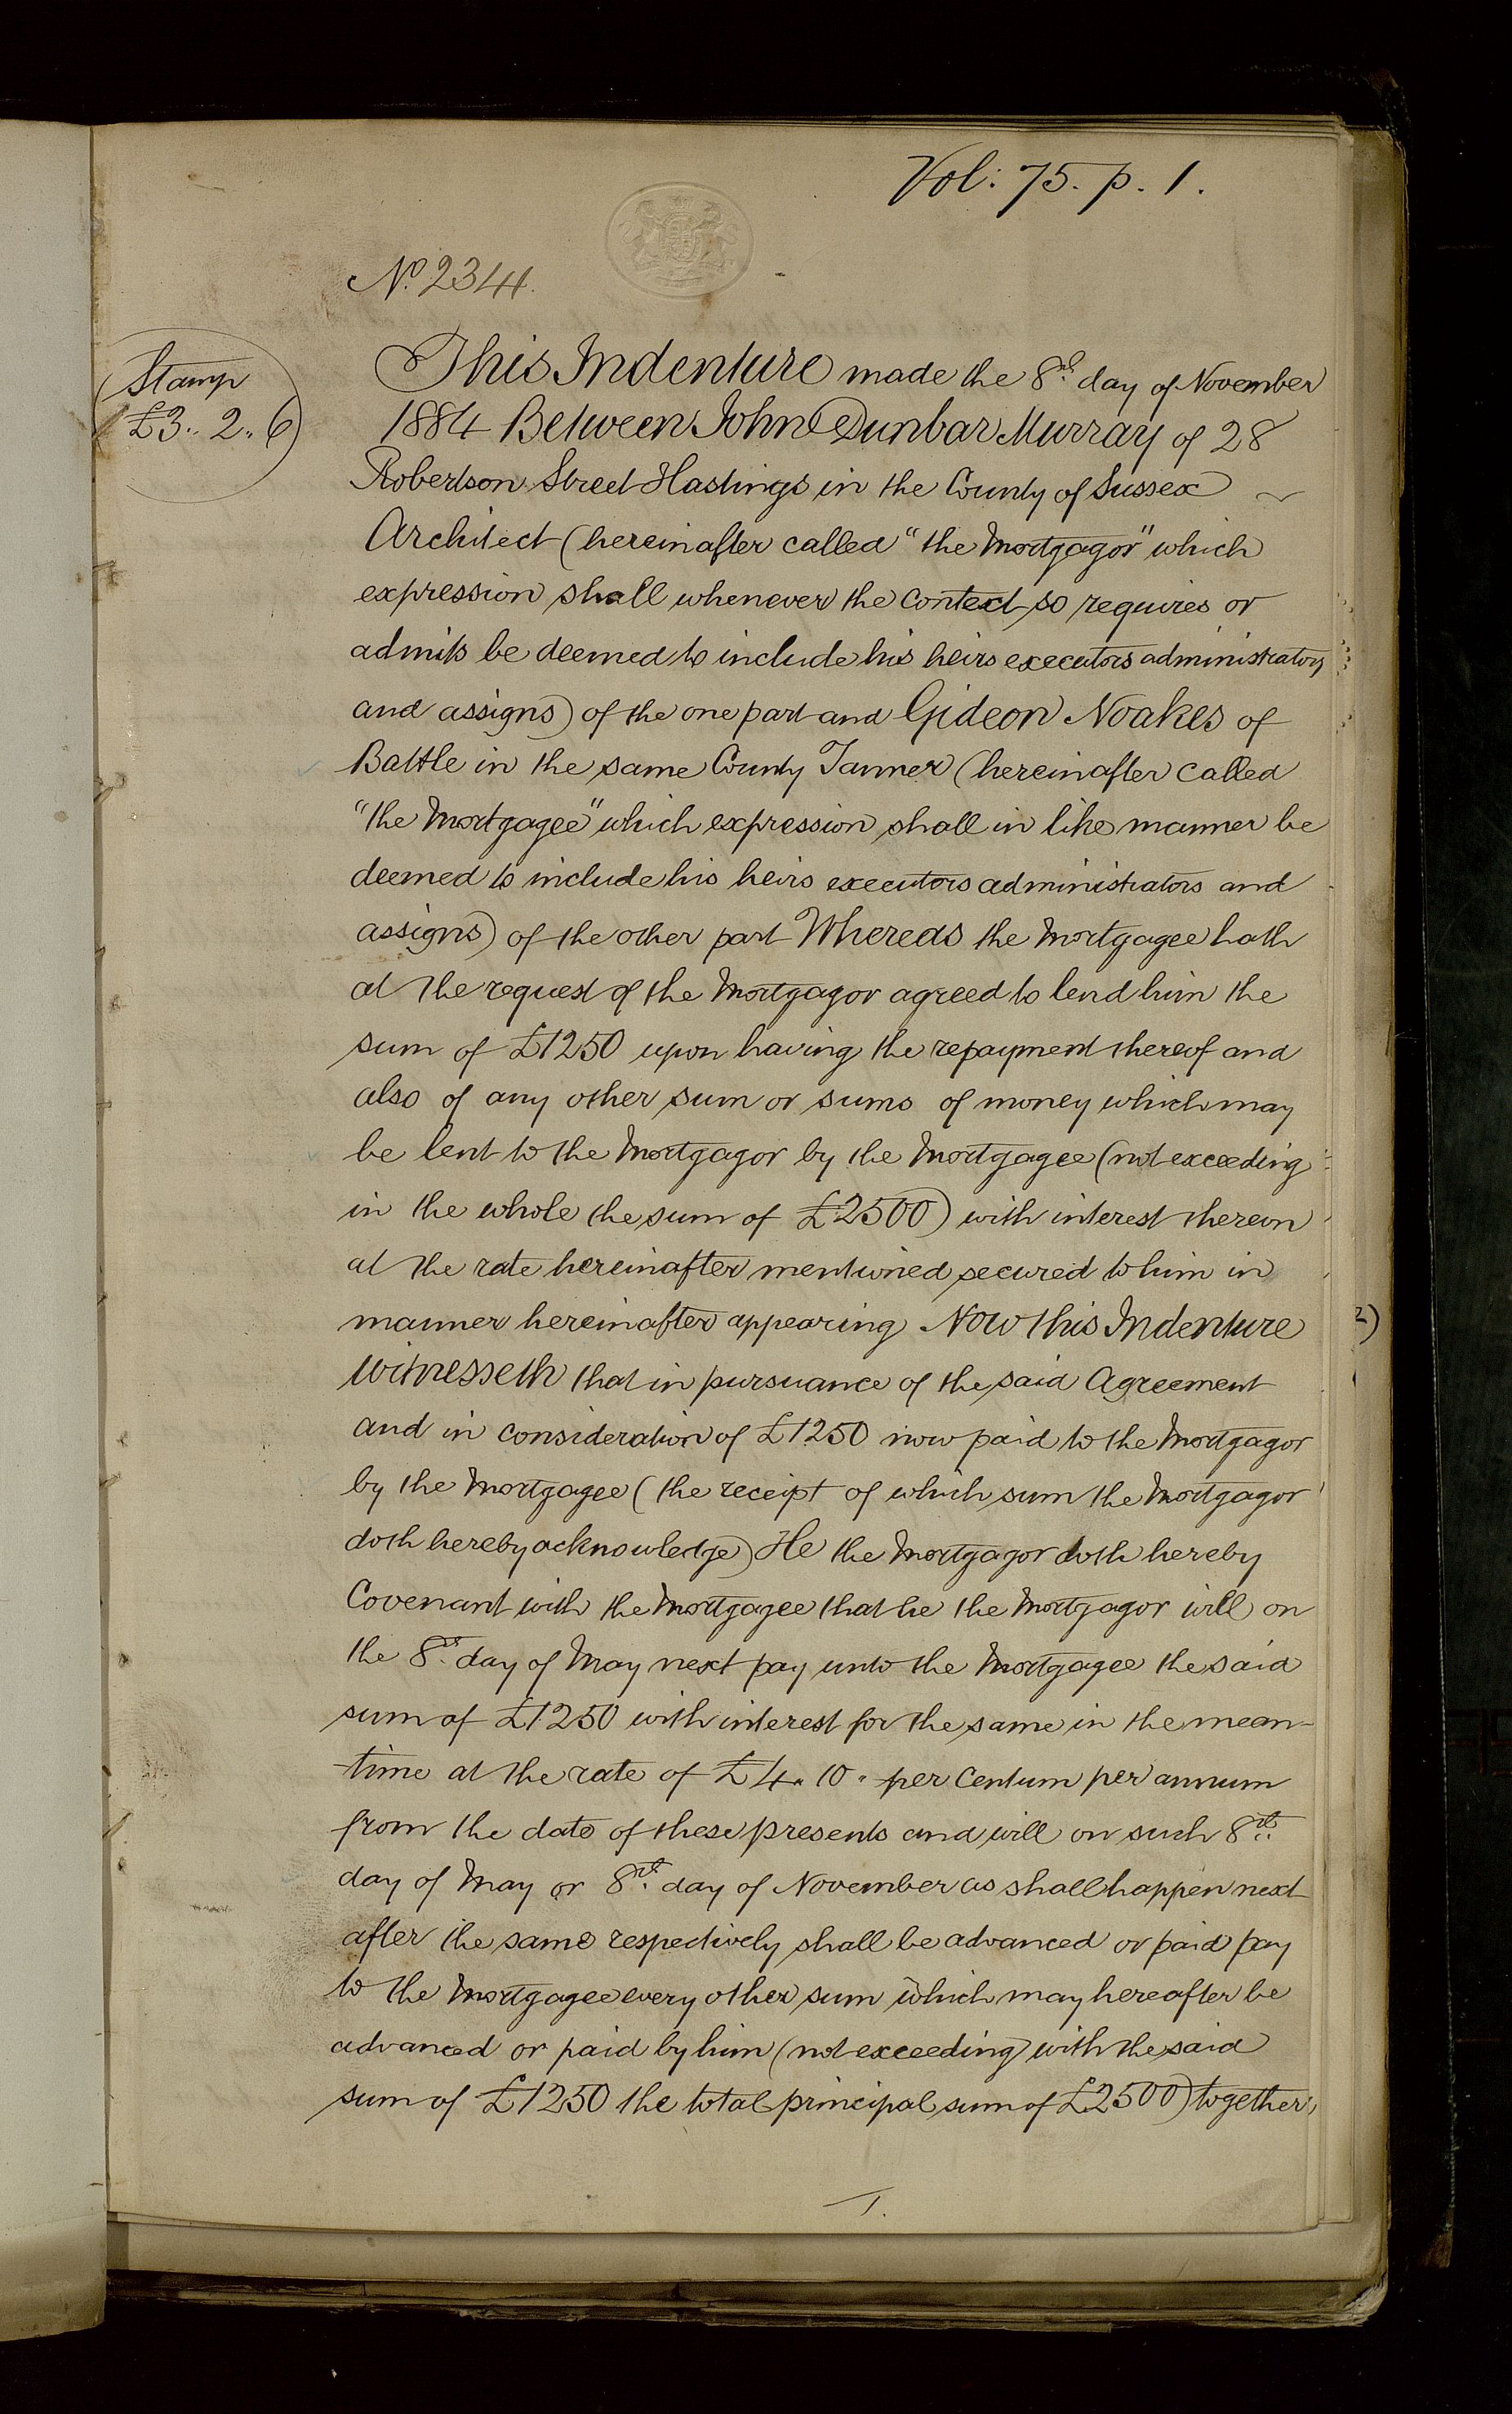 Vol: 75. p. 1.
No. 2344.
Stamp
£3.. 2.. 6
This Indenture made the 8th day of November
1884 Between John Dunbar Murray of 28
Robertson Street Hastings in the County of Sussex
Architect (hereinafter called "the Mortgagor" which
expression shall whenever the context so requires or
admits be deemed to include his heirs executors administrators
and assigns) of the one part and Gideon Noakes of
Battle in the same County Tanner (hereinafter called
"the Mortgagee" which expression shall in like manner be
deemed to include his heirs executors administrators and
assigns) of the other part Whereas the Mortgagee hath
at the request of the Mortgagor agreed to lend him the
sum of £1250 upon having the repayment thereof and
also of any other sum or sums of money which may
be lent to the Mortgagor by the Mortgagee (not exceeding
in the whole the sum of £2500) with interest thereon
at the rate hereinafter mentioned secured to him in
manner hereinafter appearing Now this Indenture
witnesseth that in pursuance of the said Agreement
and in consideration of £1250 now paid to the Mortgagor
by the Mortgagee (the receipt of which sum the Mortgagor
doth hereby acknowledge) He the Mortgagor doth hereby
Covenant with the Mortgagee that he the Mortgagor will on
the 8th day of May next pay unto the Mortgagee the said
sum of £1250 with interest for the same in the mean-
-time at the rate of £4" 10" per Centum per annum
from the date of these presents and will on such 8th
day of May or 8th day of November as shall happen next
after the same respectively shall be advanced or paid pay
to the Mortgagee every other sum which may hereafter be
advanced or paid by him (not exceeding with the said
sum of £1250 the total principal sum of £2500) together,
1.
2)